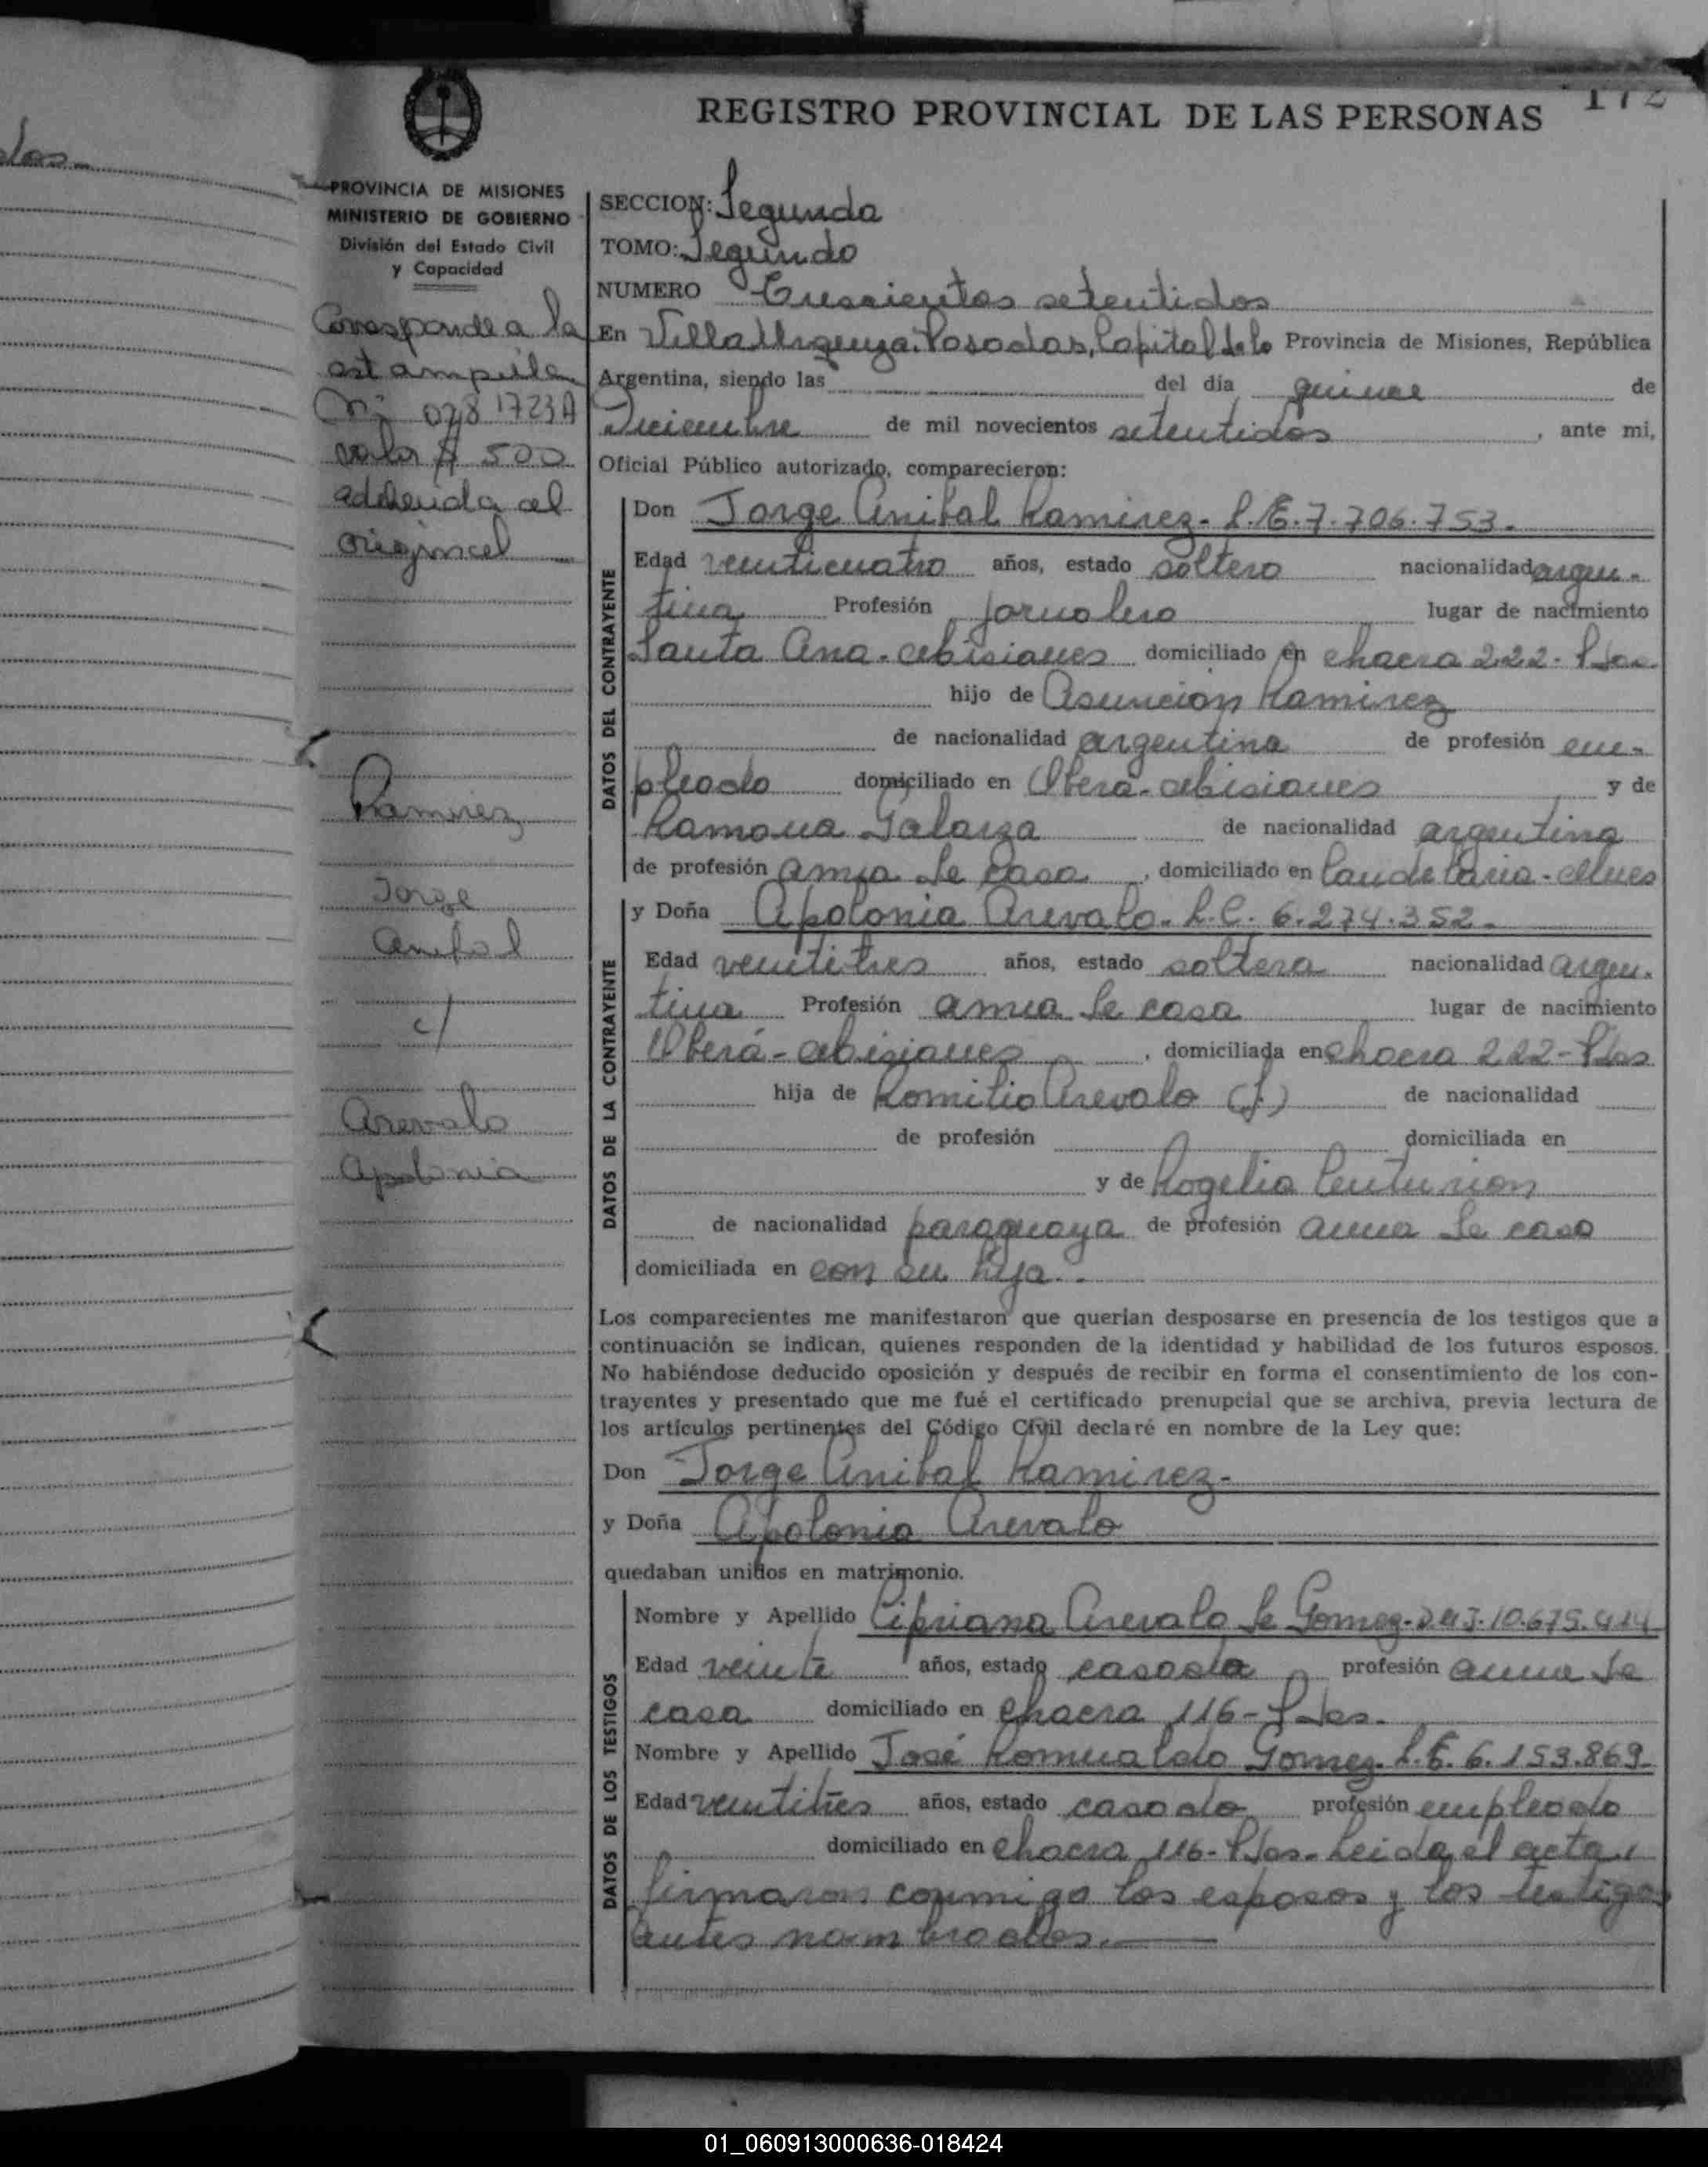 172
REGISTRO PROVINCIAL DE LAS PERSONAS
PROVINCIA DE MISIONES
MINISTERIO DE GOBIERNO
División del Estado Civil
y Capacidad
Corresponde a la
estampilla
Nº 0781723A
valor $ 500
adherida al
original
Ramirez
Jorge
Anibal
c/
Arevalo
Apolonia
SECCION: Segunda
TOMO: Segundo
NUMERO Trescientos setentidos
En Villa Urquiza. Posadas, Capital de la Provincia de Misiones, República
Argentina, siendo las del día quince de
Diciembre de mil novecientos setentidos, ante mi,
Oficial Público autorizado, comparecieron:
DATOS DEL CONTRAYENTE
Don Jorge Anibal Ramirez- L.E. 7.706.753.
Edad veinticuatro años, estado soltero nacionalidad argen-
tina Profesión jornalero lugar de nacimiento
Santa Ana - Misiones domiciliado en chacra 222- Pdas
hijo de Asunción Ramirez
de nacionalidad argentina de profesión em-
pleado domiciliado en Oberá - Misiones y de
Ramona Galarza de nacionalidad argentina
de profesión ama de casa, domiciliado en Candelaria - Mnes
DATOS DE LA CONTRAYENTE
y Doña Apolonia Arevalo- L.C. 6.274.352-
Edad veintitres años, estado soltera nacionalidad argen-
tina Profesión ama de casa lugar de nacimiento
Oberá - Misiones, domiciliada en chacra 222- Pdas
hija de Romilio Arevalo (f.) de nacionalidad
de profesión domiciliada en
y de Rogelia Centurion
de nacionalidad paraguaya de profesión ama de casa
domiciliada en con su hija.
Los comparecientes me manifestaron que querían desposarse en presencia de los testigos que a
continuación se indican, quienes responden de la identidad y habilidad de los futuros esposos.
No habiéndose deducido oposición y después de recibir en forma el consentimiento de los con-
trayentes y presentado que me fué el certificado prenupcial que se archiva, previa lectura de
los artículos pertinentes del Código Civil declaré en nombre de la Ley que:
Don Jorge Anibal Ramirez-
y Doña Apolonia Arevalo
quedaban unidos en matrimonio.
DATOS DE LOS TESTIGOS
Nombre y Apellido Cipriana Arevalo de Gomez- D.N.I. 10.675.414
Edad veinte años, estado casada profesión ama de
casa domiciliado en chacra 116- Pdas.
Nombre y Apellido José Romualdo Gomez. L.E. 6.153.869-
Edad veintitres años, estado casado profesión empleado
domiciliado en chacra 116- Pdas. Leida el acta,
firmaron conmigo los esposos y los testigos
antes nombrados.
01_060913000636-018424